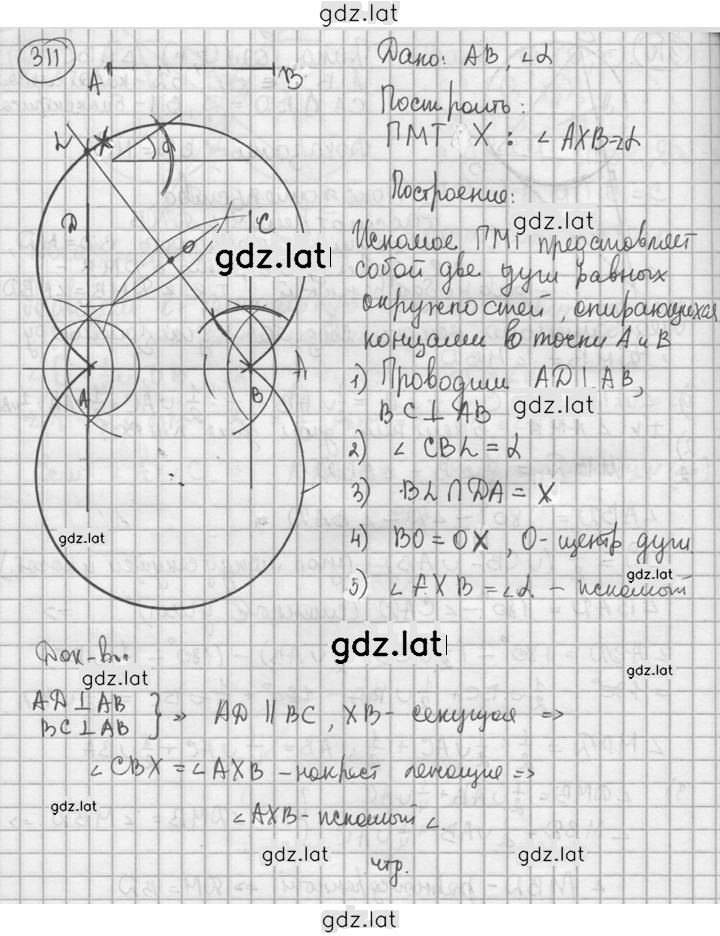 gdz.lat
311
A B
Дано: AB, ∠α
Построить:
ПМТ X : ∠AXB=α
Построение:
gdz.lat
Искомое ПМТ представляет
собой две дуги равных
окружностей, опирающихся
концами в точки A и B
1) Проводим AD⊥AB,
BC⊥AB
gdz.lat
2) ∠CBL=α
3) BL∩DA=X
4) BO=OX, O-центр дуги
gdz.lat
5) ∠AXB=∠α - искомый
L X α
D C
O
gdz.lat
A B
gdz.lat
gdz.lat
Док-во:
gdz.lat
gdz.lat
AD⊥AB
BC⊥AB } => AD||BC, XB- секущая =>
∠CBX=∠AXB-накрест лежащие =>
gdz.lat
∠AXB-искомый ∠.
gdz.lat gdz.lat
чтд.
gdz.lat